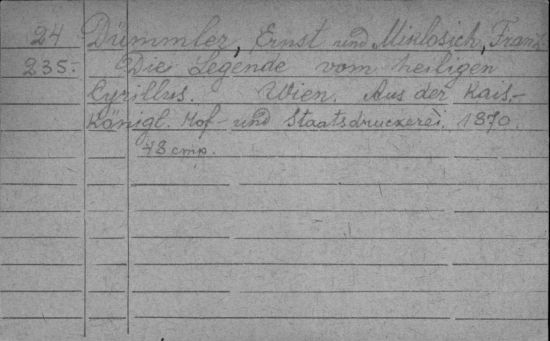 24 Dümmler, Ernst und Miklosich, Franz
235. Die Legende vom heiligen
Cyrillus. Wien. Aus der Kais.-
Königl. Hof- und Staatsdruckerei. 1870.
48 стр.